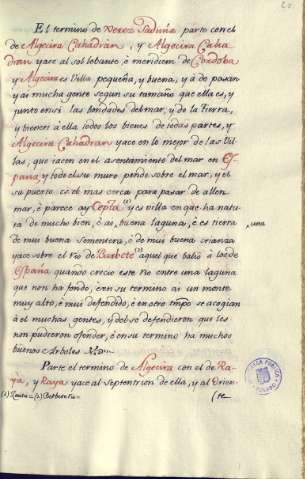 El termino de Xerez Saduña parte con el
de Algecira Cahadran, y Algecira Caha
dran yace al sol lebante, è meridiem de Cordoba
y Algecira es Villa pequeña, y buena, y à de pasar
y ai mucha gente segun su tamaño que ella es, y
junto en si las bondades del mar, y de la tierra,
y bienen à ella todos los bienes de todas partes, y
Algecira Cahadran yace en lo mejor de las Vi
llas, que iacen en el asentamiento del mar en Es
paña, y todo el su muro pende sobre el mar, y el
su puerto es el mas cerca para pasar de allen
mar, è parece ay Cepta (1) y es villa en que ha natu
ra de mucho bien, è ai, buena laguna, è es tierra
una
de mui buena sementera, è de mui buena crianza
yace sobre el Rio de Barbete (2) aquel que baliò à los de
España quando crecio este Rio entre una laguna
que non ha fondo, è en su termino ai un monte
mui alto, è mui defendido, è en otro tmpo se acogian
à el muchas gentes, y del se defendieron que les
non pudieron ofender, è en su termino ha muchos
buenos Arboles
Parte el termino de Algecira con el de Ra
ya, y Raya yace al septentrion de ella, y al Orien-
(te